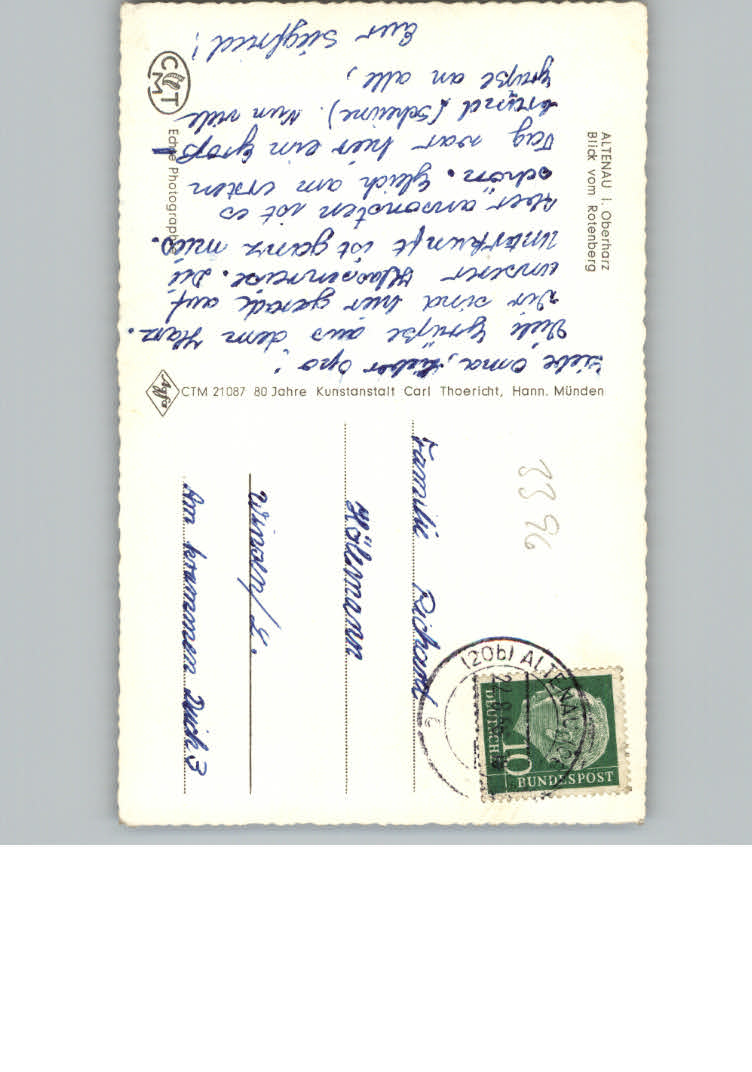 ALTENAU i. Oberharz
Blick vom Rotenberg
Liebe Oma, lieber Opa!
Viele Grüße aus dem Harz.
Wir sind hier gerade auf
unserer Klassenreise. Die
Unterkunft ist ganz mies.
Aber ansonsten ist es
schön. Gleich am ersten
Tag war hier ein Groß-
brand (Scheune). Nun viele
Grüße an alle,
Euer Siegfried!
CMT
Echte Photographie
Agfa
CTM 21087 80 Jahre Kunstanstalt Carl Thoericht, Hann. Münden
3396
(20b) ALTENAU
DEUTSCHE
10
BUNDESPOST
Familie Richard
Winsen/L.
Am krummen Deich 3